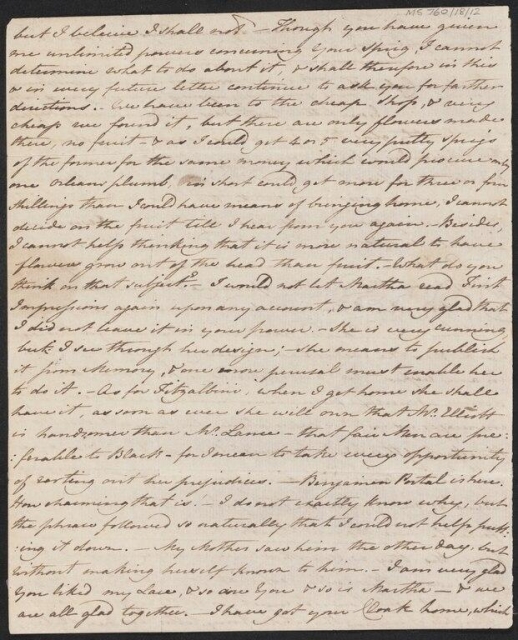 MS 760/18/12
but I beleive I shall not. — Though you have given
me unlimited powers concerning Your Sprig, I cannot
determine what to do about it, & shall therefore in this
& in every future letter continue to ask you for farther
directions. — We have been to the cheap Shop, & very
cheap we found it, but there are only flowers made
there, no fruit — & as I could get 4 or 5 very pretty sprigs
of the former for the same money which would procure only
one Orleans plumb, in short could get more for three or four
Shillings than I could have means of bringing home, I cannot
decide on the fruit till I hear from you again. — Besides,
I cannot help thinking that it is more natural to have
flowers grow out of the head than fruit. — What do you
think on that subject? — I would not let Martha read First
Impressions again upon any account, & am very glad that
I did not leave it in your power. — She is very cunning,
but I see through her design; — she means to publish
it from Memory, & one more perusal must enable her
to do it. — As for Fitzalbini, when I get home she shall
have it, as soon as ever she will own that Mr. Elliott
is handsomer than Mr. Lance — that fair Men are pre:
:ferable to Black — for I mean to take every opportunity
of rooting out her prejudices. — Benjamin Portal is here.
How charming that is! — I do not exactly know why, but
the phrase followed so naturally that I could not help putt:
:ing it down. — My Mother saw him the other day, but
without making herself known to him. — I am very glad
You liked my Lace, & so are You & so is Martha — & we
are all glad together. — I have got your Cloak home, which